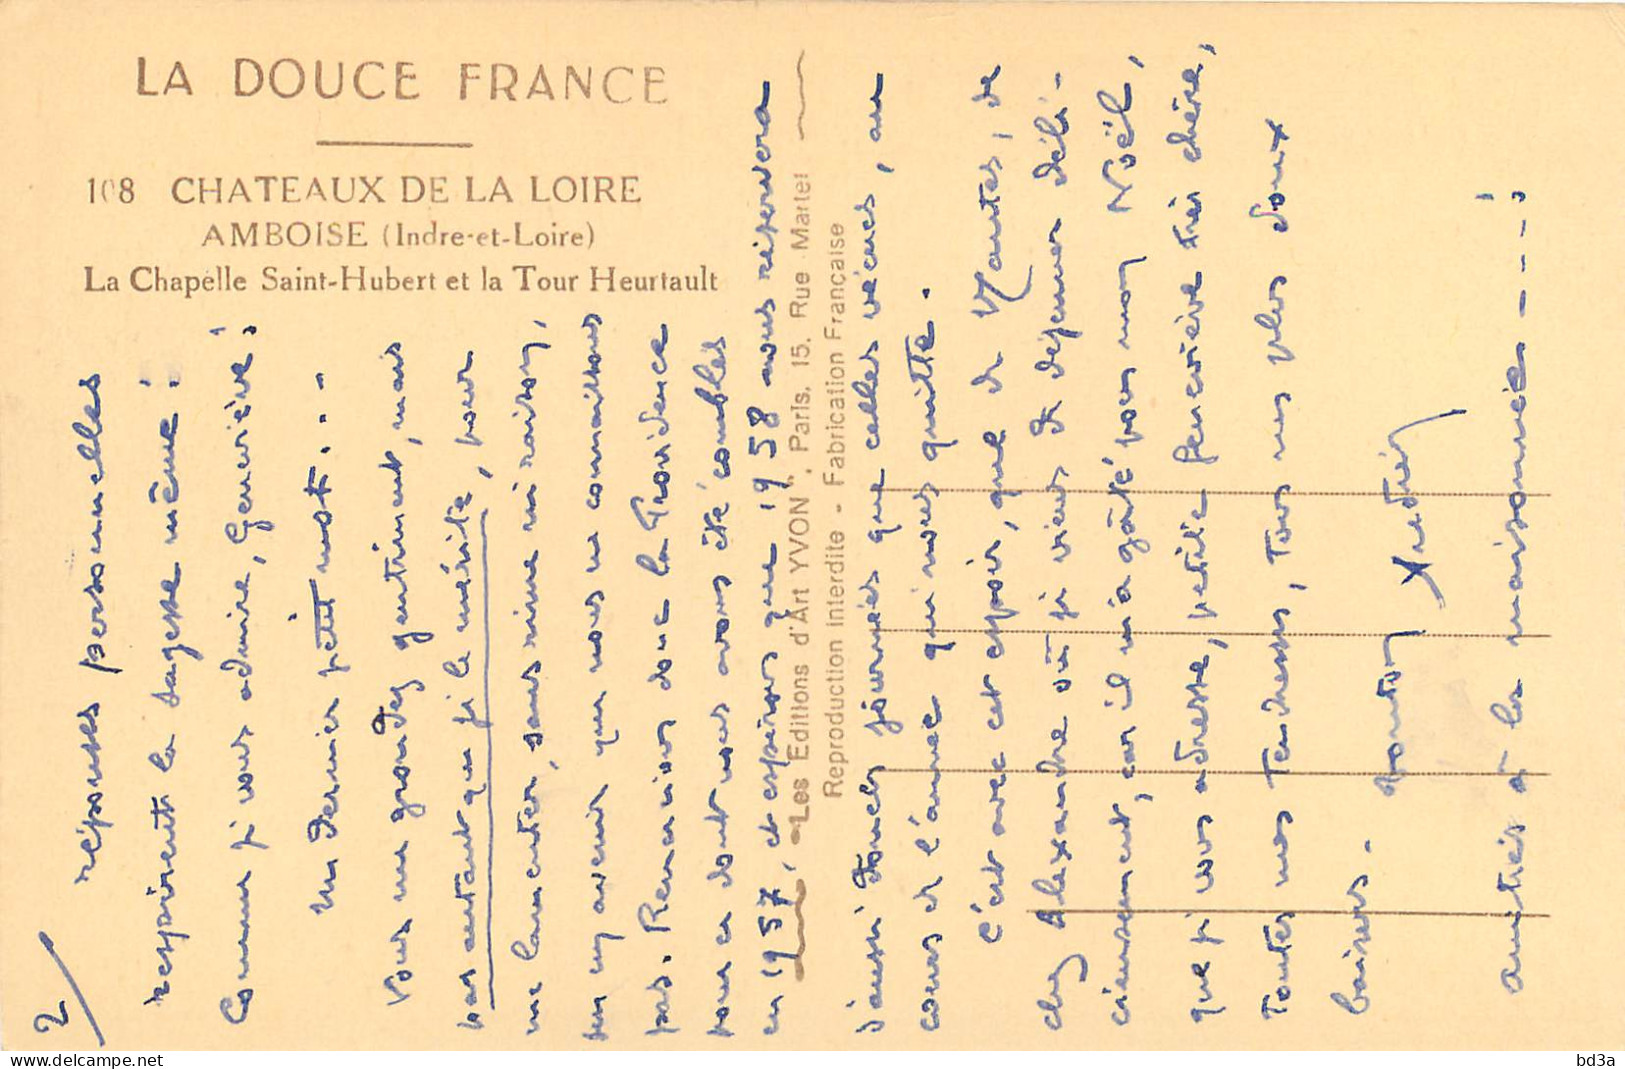 LA DOUCE FRANCE
108 CHATEAUX DE LA LOIRE
AMBOISE (Indre-et-Loire)
La Chapelle Saint-Hubert et la Tour Heurtault
"Les Editions d'Art YVON", Paris, 15, Rue Martel
Reproduction Interdite - Fabrication Française
2/
réponses personnelles
respirent la sagesse même !
Comme je vous admire, Geneviève !
Un dernier petit mot...
Vous me grondez gentiment, mais
pas autant que je le mérite, pour
me lamenter, sans rime ni raison,
sur un avenir que nous ne connaissons
pas. Remercions donc la Providence
pour ce dont nous avons été comblés
en 1957, et espérons que 1958 nous réservera
d'aussi douces journées que celles vécues, au
cours de l'année qui nous quitte.
C'est avec cet espoir, que de Nantes, de
chez Alexandre où je viens de déjeuner déli-
cieusement, car il m'a gâté pour mon Noël,
que je vous adresse, petite Geneviève très chérie,
toutes mes tendresses, tous mes plus doux
baisers.
amitiés à la maisonnée ---- !